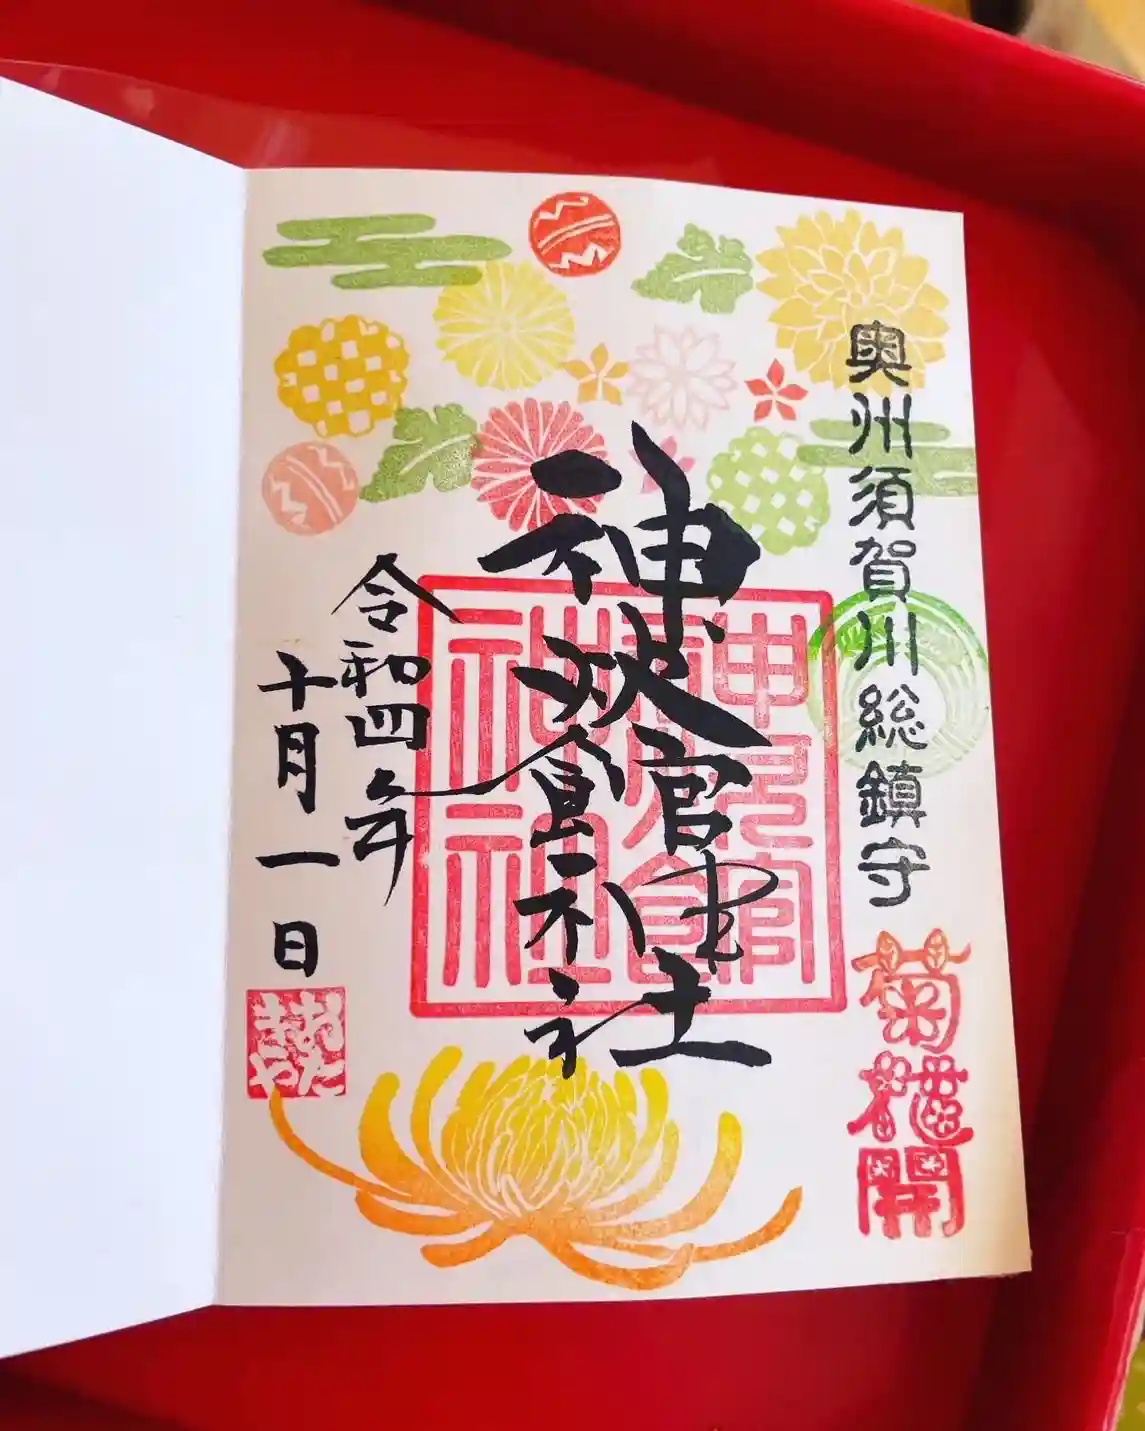 奥州須賀川総鎮守
菊花開
神炊館神社
令和四年
十月一日
おた
きや